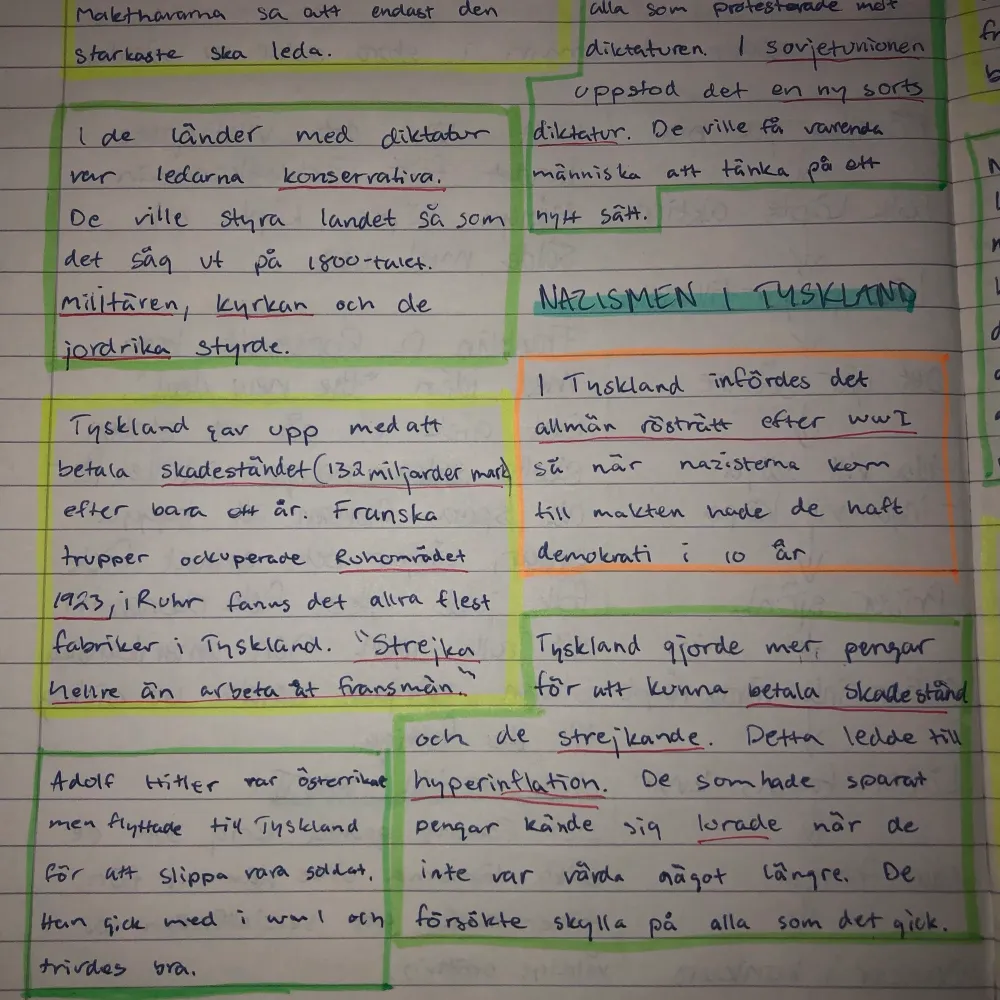 Makthavarna sa att endast den
starkaste ska leda.
I de länder med diktatur
var ledarna konservativa.
De ville styra landet så som
det såg ut på 1800-talet.
Militären, kyrkan och de
jordrika styrde.
Tyskland gav upp med att
betala skadeståndet (132 miljarder mark)
efter bara ett år. Franska
trupper ockuperade Ruhområdet
1923, i Ruhr fanns det allra flest
fabriker i Tyskland. "Strejka
hellre än arbeta åt fransmän."
Adolf Hitler var österrikat
men flyttade till Tyskland
för att slippa vara soldat.
Han gick med i ww1 och
trivdes bra.
alla som protesterade mot
diktaturen. I sovjetunionen
uppstod det en ny sorts
diktatur. De ville få varenda
människa att tänka på ett
nytt sätt.
NAZISMEN I TYSKLAND
I Tyskland infördes det
allmän rösträtt efter WWI
så när nazisterna kom
till makten hade de haft
demokrati i 10 år
Tyskland gjorde mer pengar
för att kunna betala skadestånd
och de strejkande. Detta ledde till
hyperinflation. De som hade sparat
pengar kände sig lurade när de
inte var värda något längre. De
försökte skylla på alla som det gick.